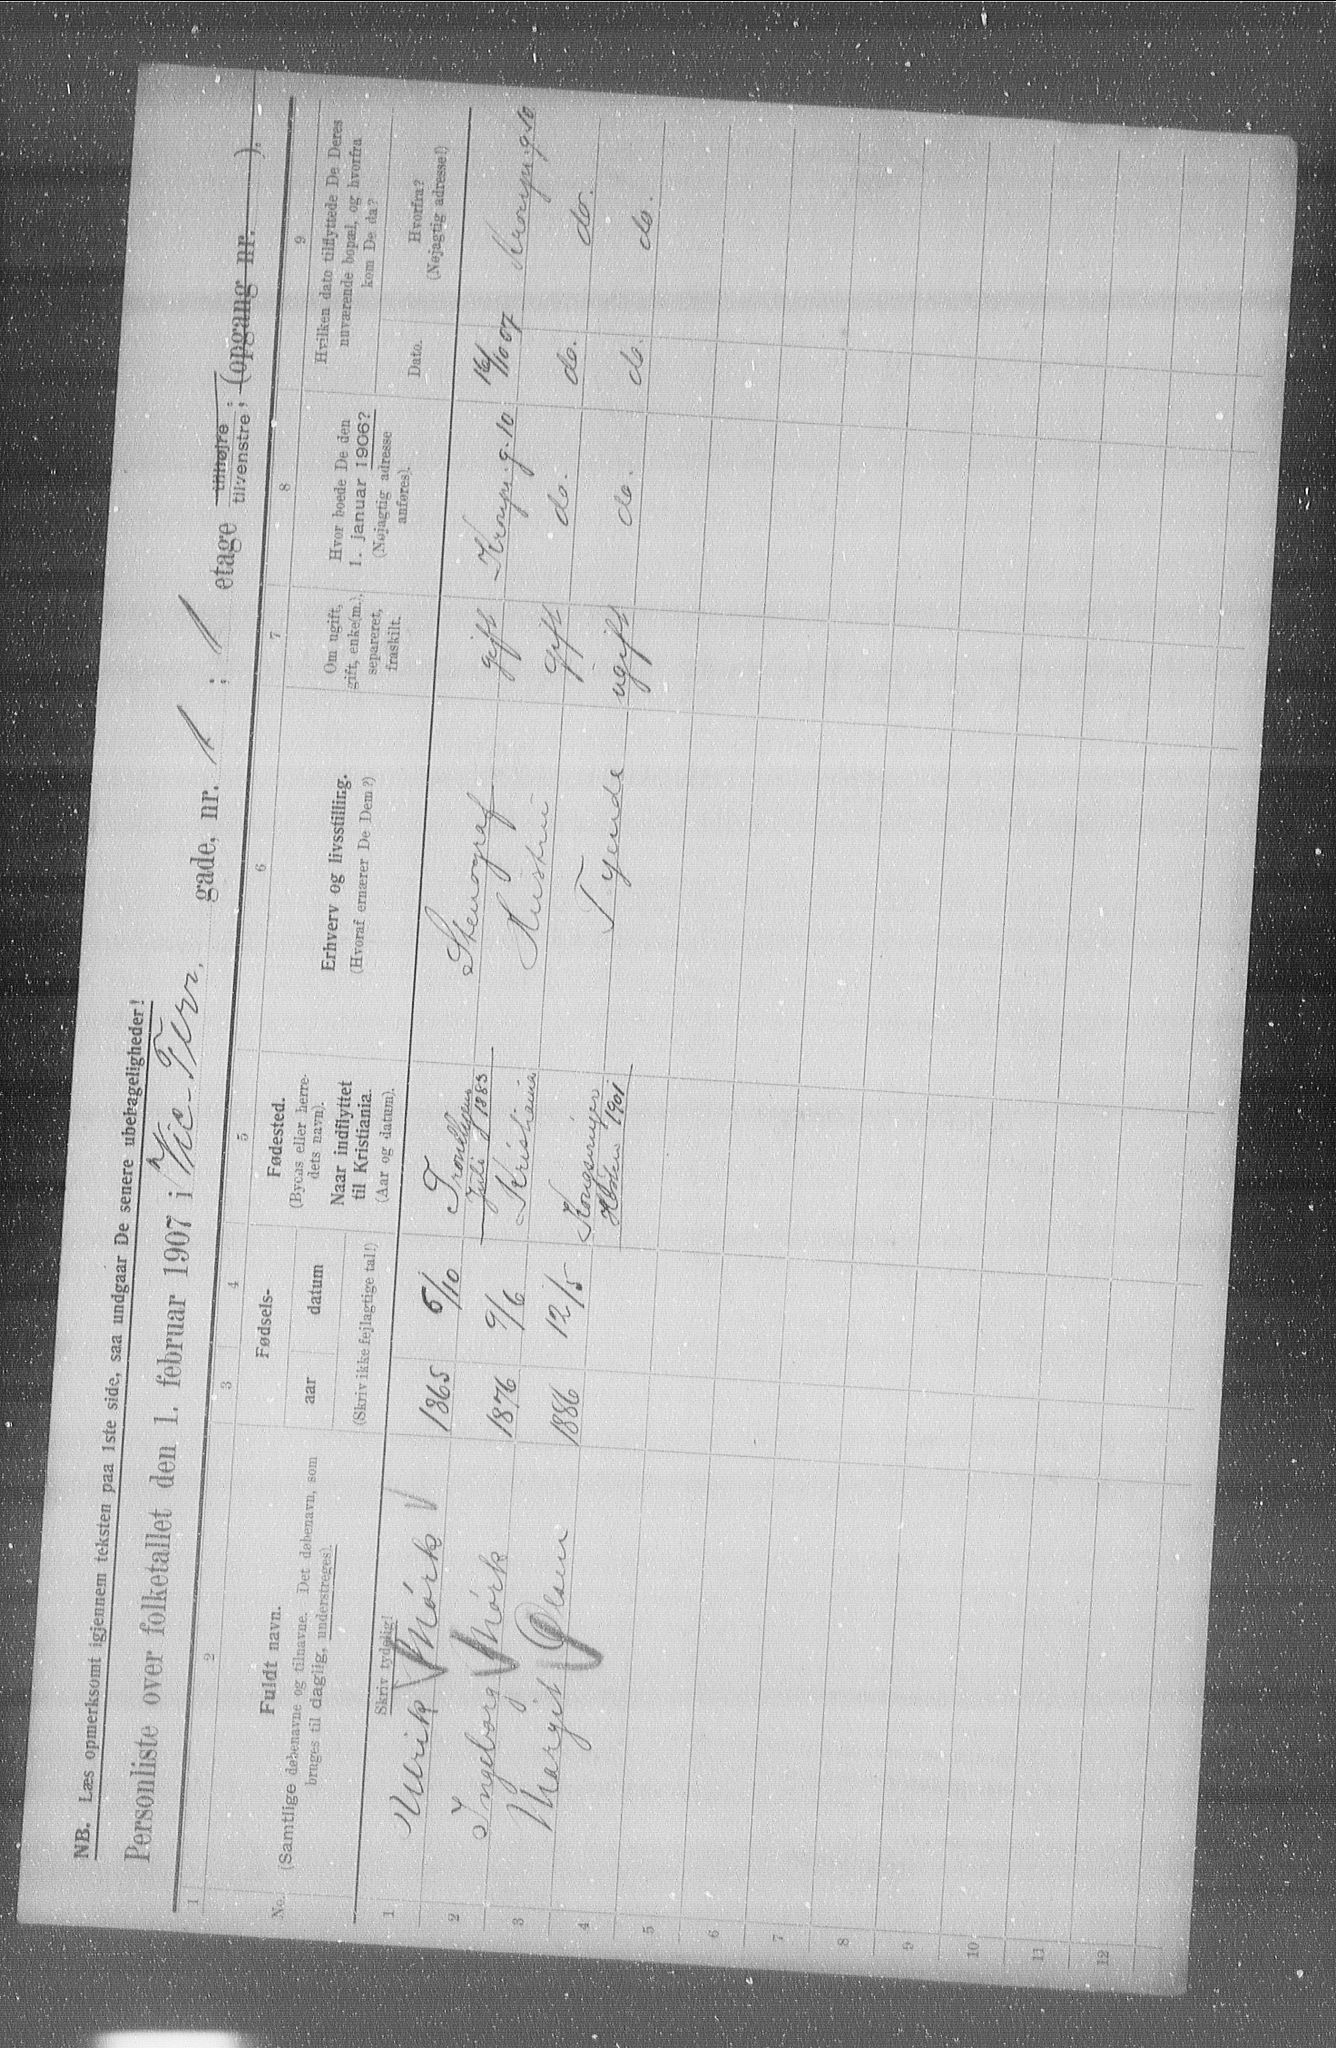 NB. Læs opmerksomt igjennem teksten paa 1ste side, saa undgaar De senere ubehageligheder!
Personliste over folketallet den 1. februar 1907 i Vic. Terr. gade, nr. 1 ; 1 etage tilhøjre tilvenstre ; (opgang nr. ).
1 2 3 4 5 6 7 8 9
No.
Fuldt navn.
(Samtlige døbenavne og tilnavne. Det døbenavn, som
bruges til daglig, understreges).
Skriv tydelig!
Fødsels-
aar datum
(Skriv ikke fejlagtige tal!)
Fødested.
(Byens eller herre-
dets navn).
Naar indflyttet
til Kristiania.
(Aar og datum).
Erhverv og livsstilling.
(Hvoraf ernærer De Dem?)
Om ugift,
gift, enke(m.),
separeret,
fraskilt.
Hvor boede De den
1. januar 1906?
(Nøjagtig adresse
anføres).
Hvilken dato tilflyttede De Deres
nuværende bopæl, og hvorfra
kom De da?
Dato.
Hvorfra?
(Nøjagtig adresse!)
1 Ulrik Mørk 1865 5/10 Trondhjem Juli 1883 Stenograf gift Kronpr.g. 10 16/10 07 Kronpr.g. 10
2 Ingeborg Mørk 1876 9/6 Kristiania Hustru gift do. do. do.
3 Margit Olsen 1886 12/5 Kongsvinger 1901 Tyende ugift do. do. do.
4
5
6
7
8
9
10
11
12